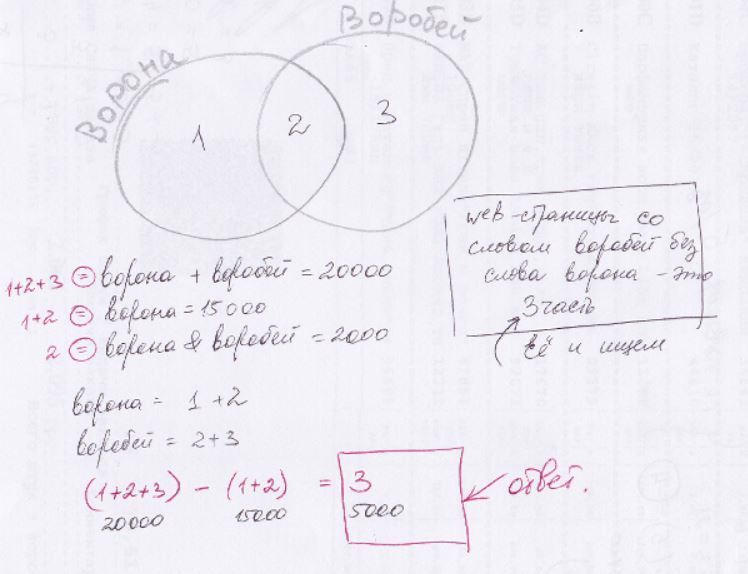 Воробей
Ворона
1
2
3
web-страницы со
словом воробей без
слова ворона - это
3 часть
её и ищем
1+2+3 = ворона + воробей = 20000
1+2 = ворона = 15000
2 = ворона & воробей = 2000
ворона = 1+2
воробей = 2+3
(1+2+3) - (1+2) = 3
20000 15000 5000
ответ.